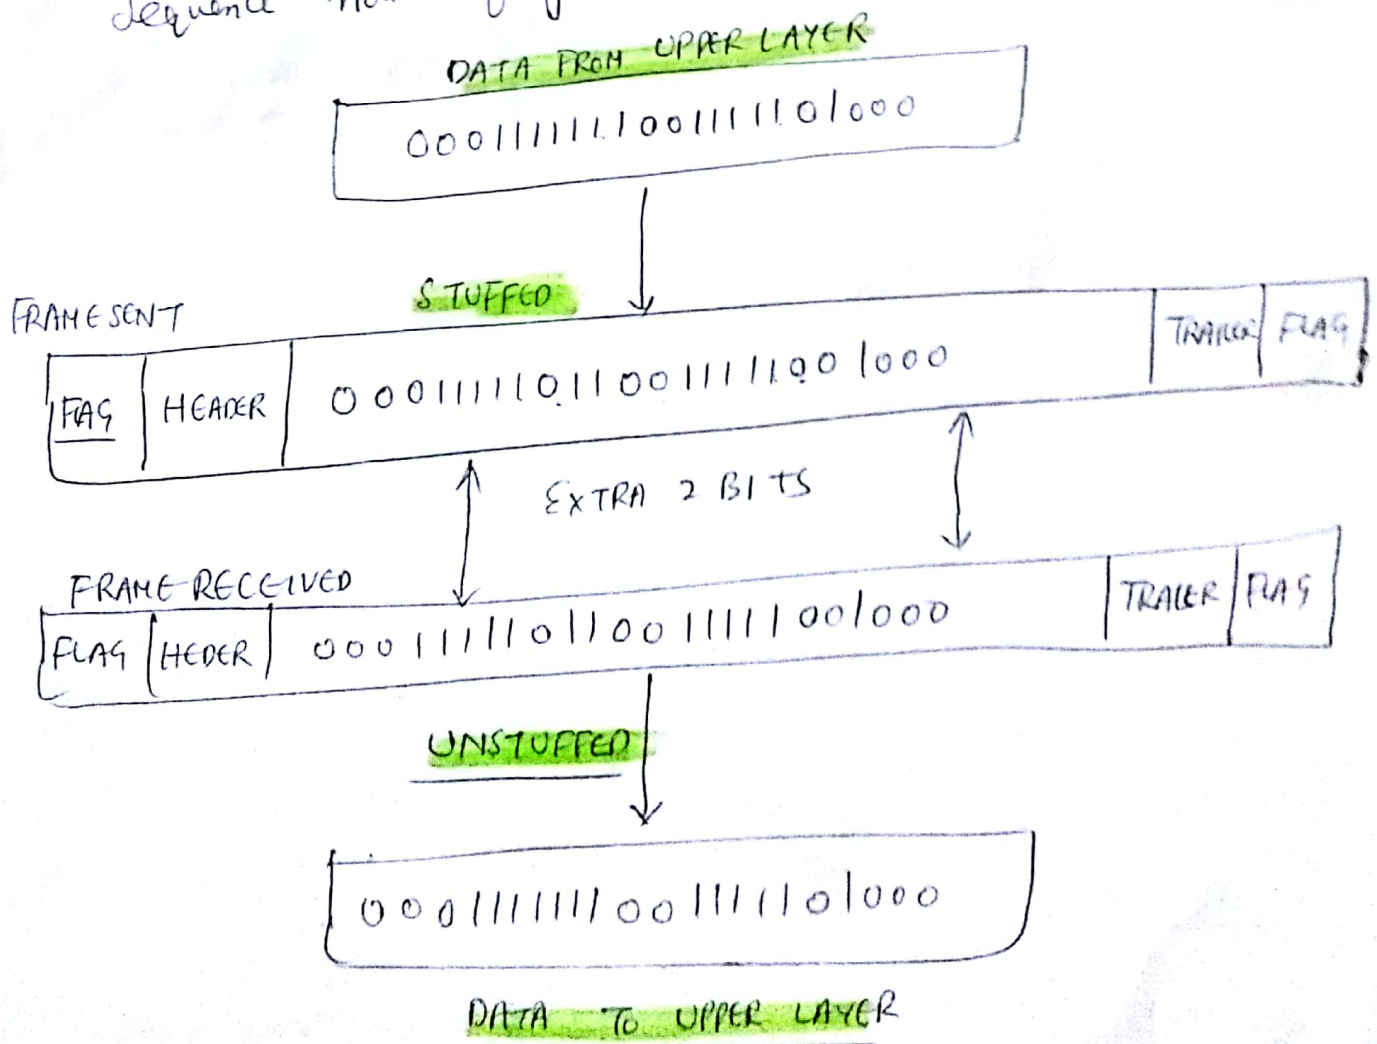 sequence
DATA FROM UPPER LAYER
000111111110011111101000
STUFFED
FRAME SENT
FLAG HEADER 0001111110110011111001000 TRAILER FLAG
EXTRA 2 BITS
FRAME RECEIVED
FLAG HEDER 0001111110110011111001000 TRALER FLAG
UNSTUFFED
000111111110011111101000
DATA TO UPPER LAYER